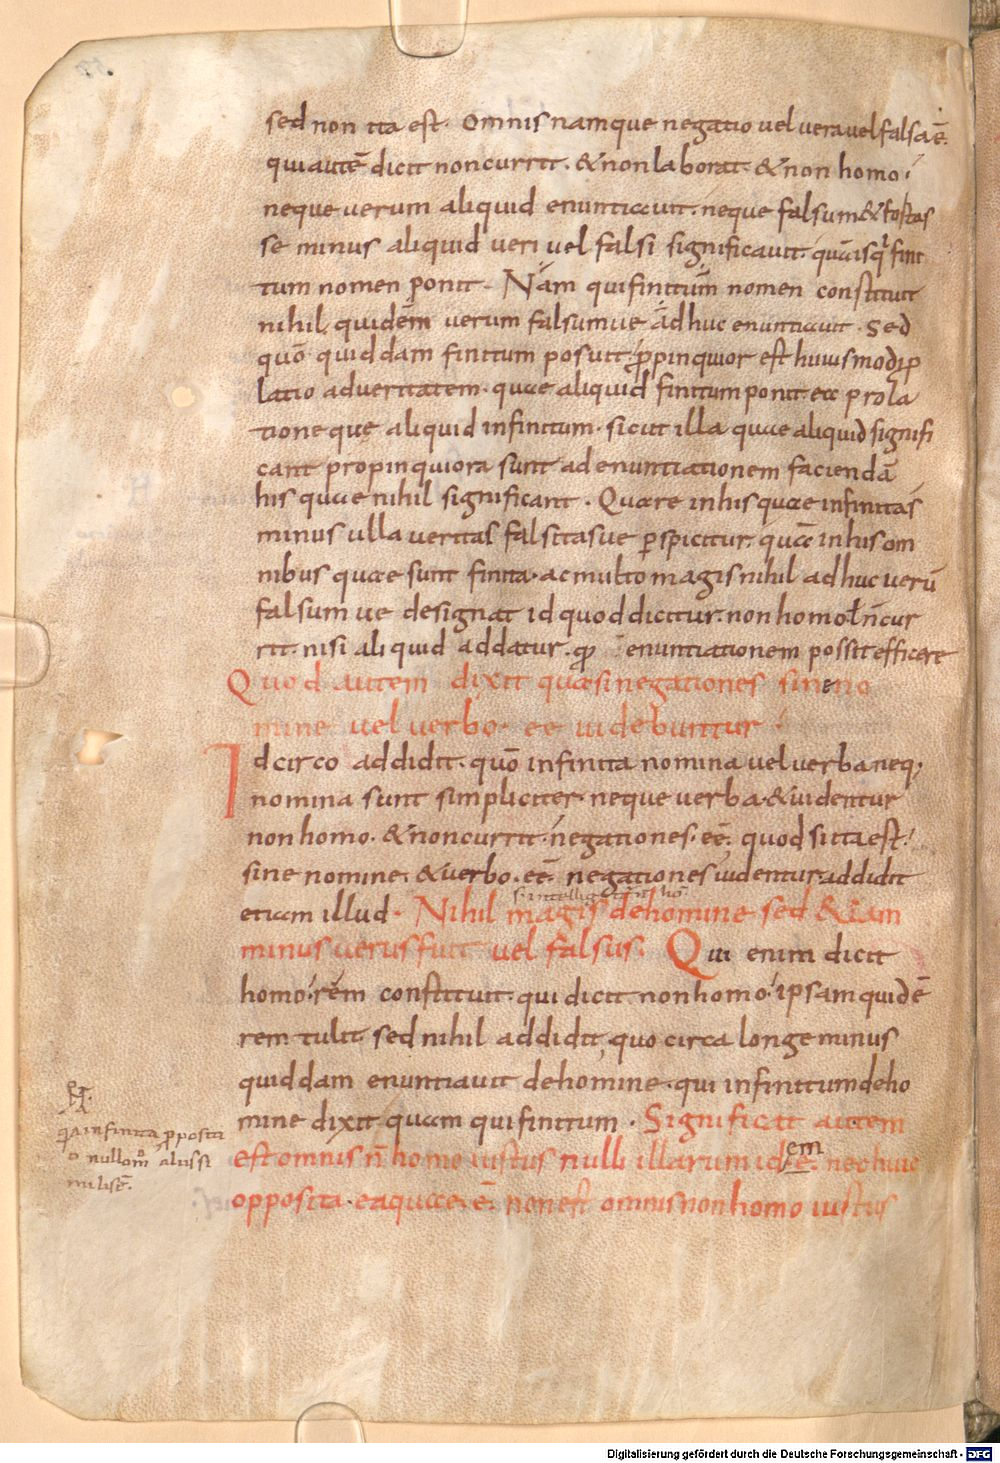 sed non ita est. Omnis namque negatio vel vera vel falsa ē.
qui autē dicit non currit. & non laborat. & non homo.
neque verum aliquid enuntiavit. neque falsum & fortas
se minus aliquid veri vel falsi significavit. quā is q̇ fini
tum nomen ponit. Nam qui finitum nomen constituit
nihil quidem verum falsumve adhuc enuntiavit. Sed
quō quiddam finitum posuit. ꝓpinquior est huiusmodi ꝓ
latio ad veritatem. quae aliquid finitum ponit ex prola
tione que aliquid infinitum. sicut illa quae aliquid signifi
cant propinquiora sunt ad enuntiationem faciendā
his quae nihil significant. Quare in his quae infinitas
minus ulla veritas falsitasve ꝑspicitur. quā in his om
nibus quae sunt finita. ac multo magis nihil adhuc verū
falsum ve designat id quod dicitur. non homo ł n̄ cur
rit. nisi aliquid addatur. enuntiationem possit efficere
Quod autem dixit quasi negationes sine no
mine vel verbo. ee videbuntur.
Idcirco addidit. quō infinita nomina vel verba neq;
nomina sunt simpliciter. neque verba. & videntur
non homo. & non currit. negationes. eē. quod si ita est.
sine nomine. & verbo. eē. negationes videntur. addidit
etiam illud. Nihil magis de homine sed & iam
minus verus fuit vel falsus. Qui enim dicit
homo. rem constituit. qui dicit non homo. ipsam quidē
rem tulit sed nihil addidit, quo circa longe minus
quiddam enuntiavit de homine. qui infinitum de ho
mine dixit quam qui finitum. Significat autem
est omnis n̄ homo iustus nulli illarum idem. nec huic
opposita. ea quae. ē. non est omnis non homo iustus
infinita ꝓposita
nullom̄